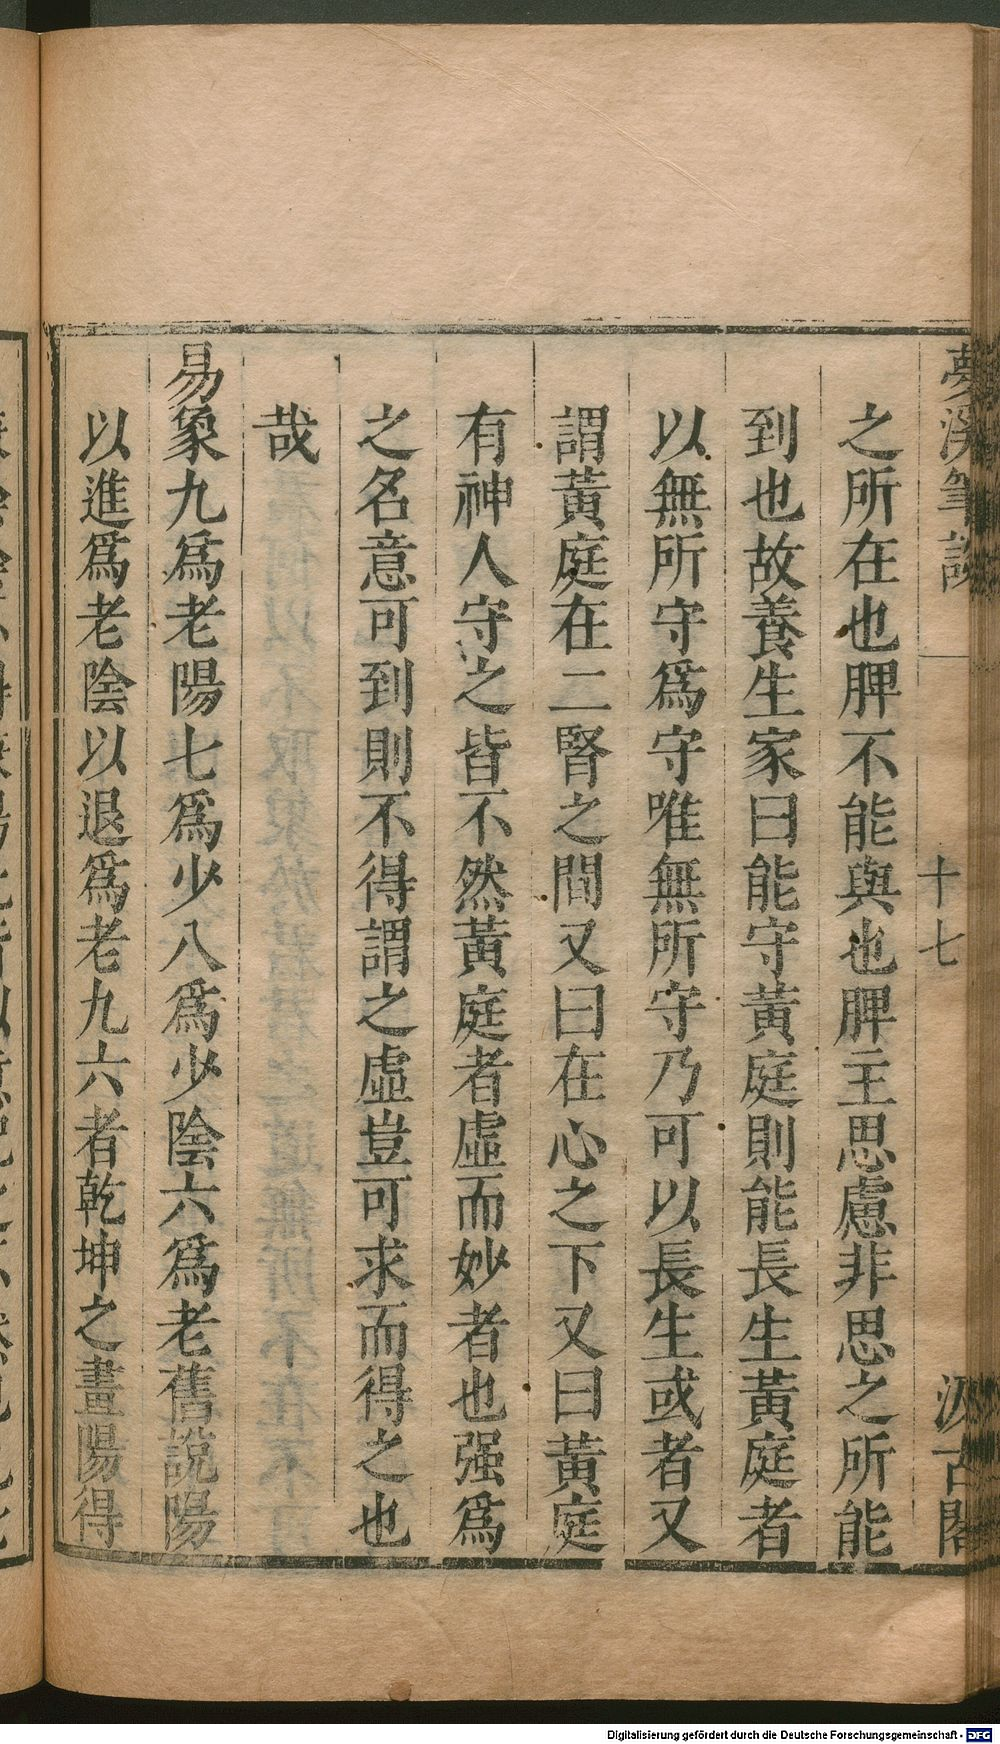 夢溪筆談
十七
汲古閣
之所在也脾不能與也脾主思慮非思之所能
到也故養生家曰能守黃庭則能長生黃庭者
以無所守爲守唯無所守乃可以長生或者又
謂黃庭在二腎之間又曰在心之下又曰黃庭
有神人守之皆不然黃庭者虛而妙者也强爲
之名意可到則不得謂之虛豈可求而得之也
哉
易象九爲老陽七爲少八爲少陰六爲老舊說陽
以進爲老陰以退爲老九六者乾坤之畫陽得
Digitalisierung gefördert durch die Deutsche Forschungsgemeinschaft - DFG